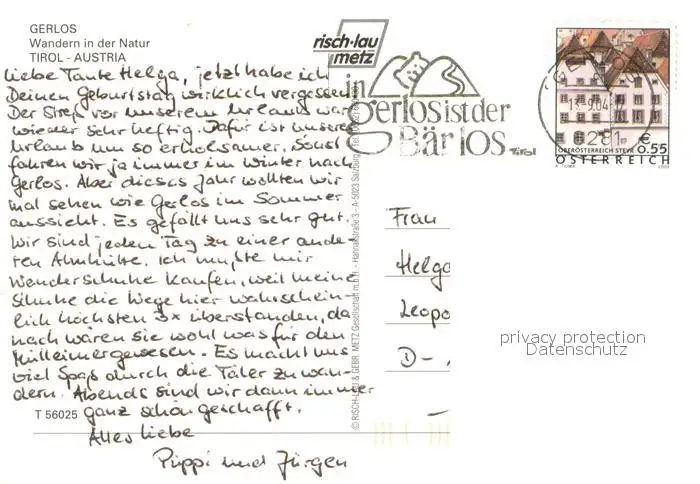 GERLOS
Wandern in der Natur
TIROL - AUSTRIA
Liebe Tante Helga, jetzt habe ich
Deinen Geburtstag wirklich vergessen.
Der Streß vor unserem Urlaub war
wieder sehr heftig. Dafür ist unser
Urlaub um so erholsamer. Sonst
fahren wir ja immer im Winter nach
Gerlos. Aber dieses Jahr wollten wir
mal sehen wie Gerlos im Sommer
aussieht. Es gefällt uns sehr gut.
Wir sind jeden Tag zu einer ande-
ren Almhütte. Ich mußte mir
Wanderschuhe kaufen, weil meine
Schuhe die Wege hier wahrschein-
lich höchsten 3x überstanden, da
nach wären sie wohl was für den
Mülleimer gewesen. Es macht uns
viel Spaß durch die Täler zu wan-
dern. Abends sind wir dann immer
ganz schön geschafft.
Alles liebe
Puppi und Jürgen
T 56025
© RISCH-LAU & GEBR. METZ Gesellschaft m.b.H. - Hannakstraße 3 - A-5023 Salzburg
risch-lau
metz
in
gerlos ist der
Bär los
Tirol
13.-9.04
6281
€ 0.55
OBERÖSTERREICH STEYR
ÖSTERREICH
Frau
Helga
Leopo
D-
privacy protection
Datenschutz